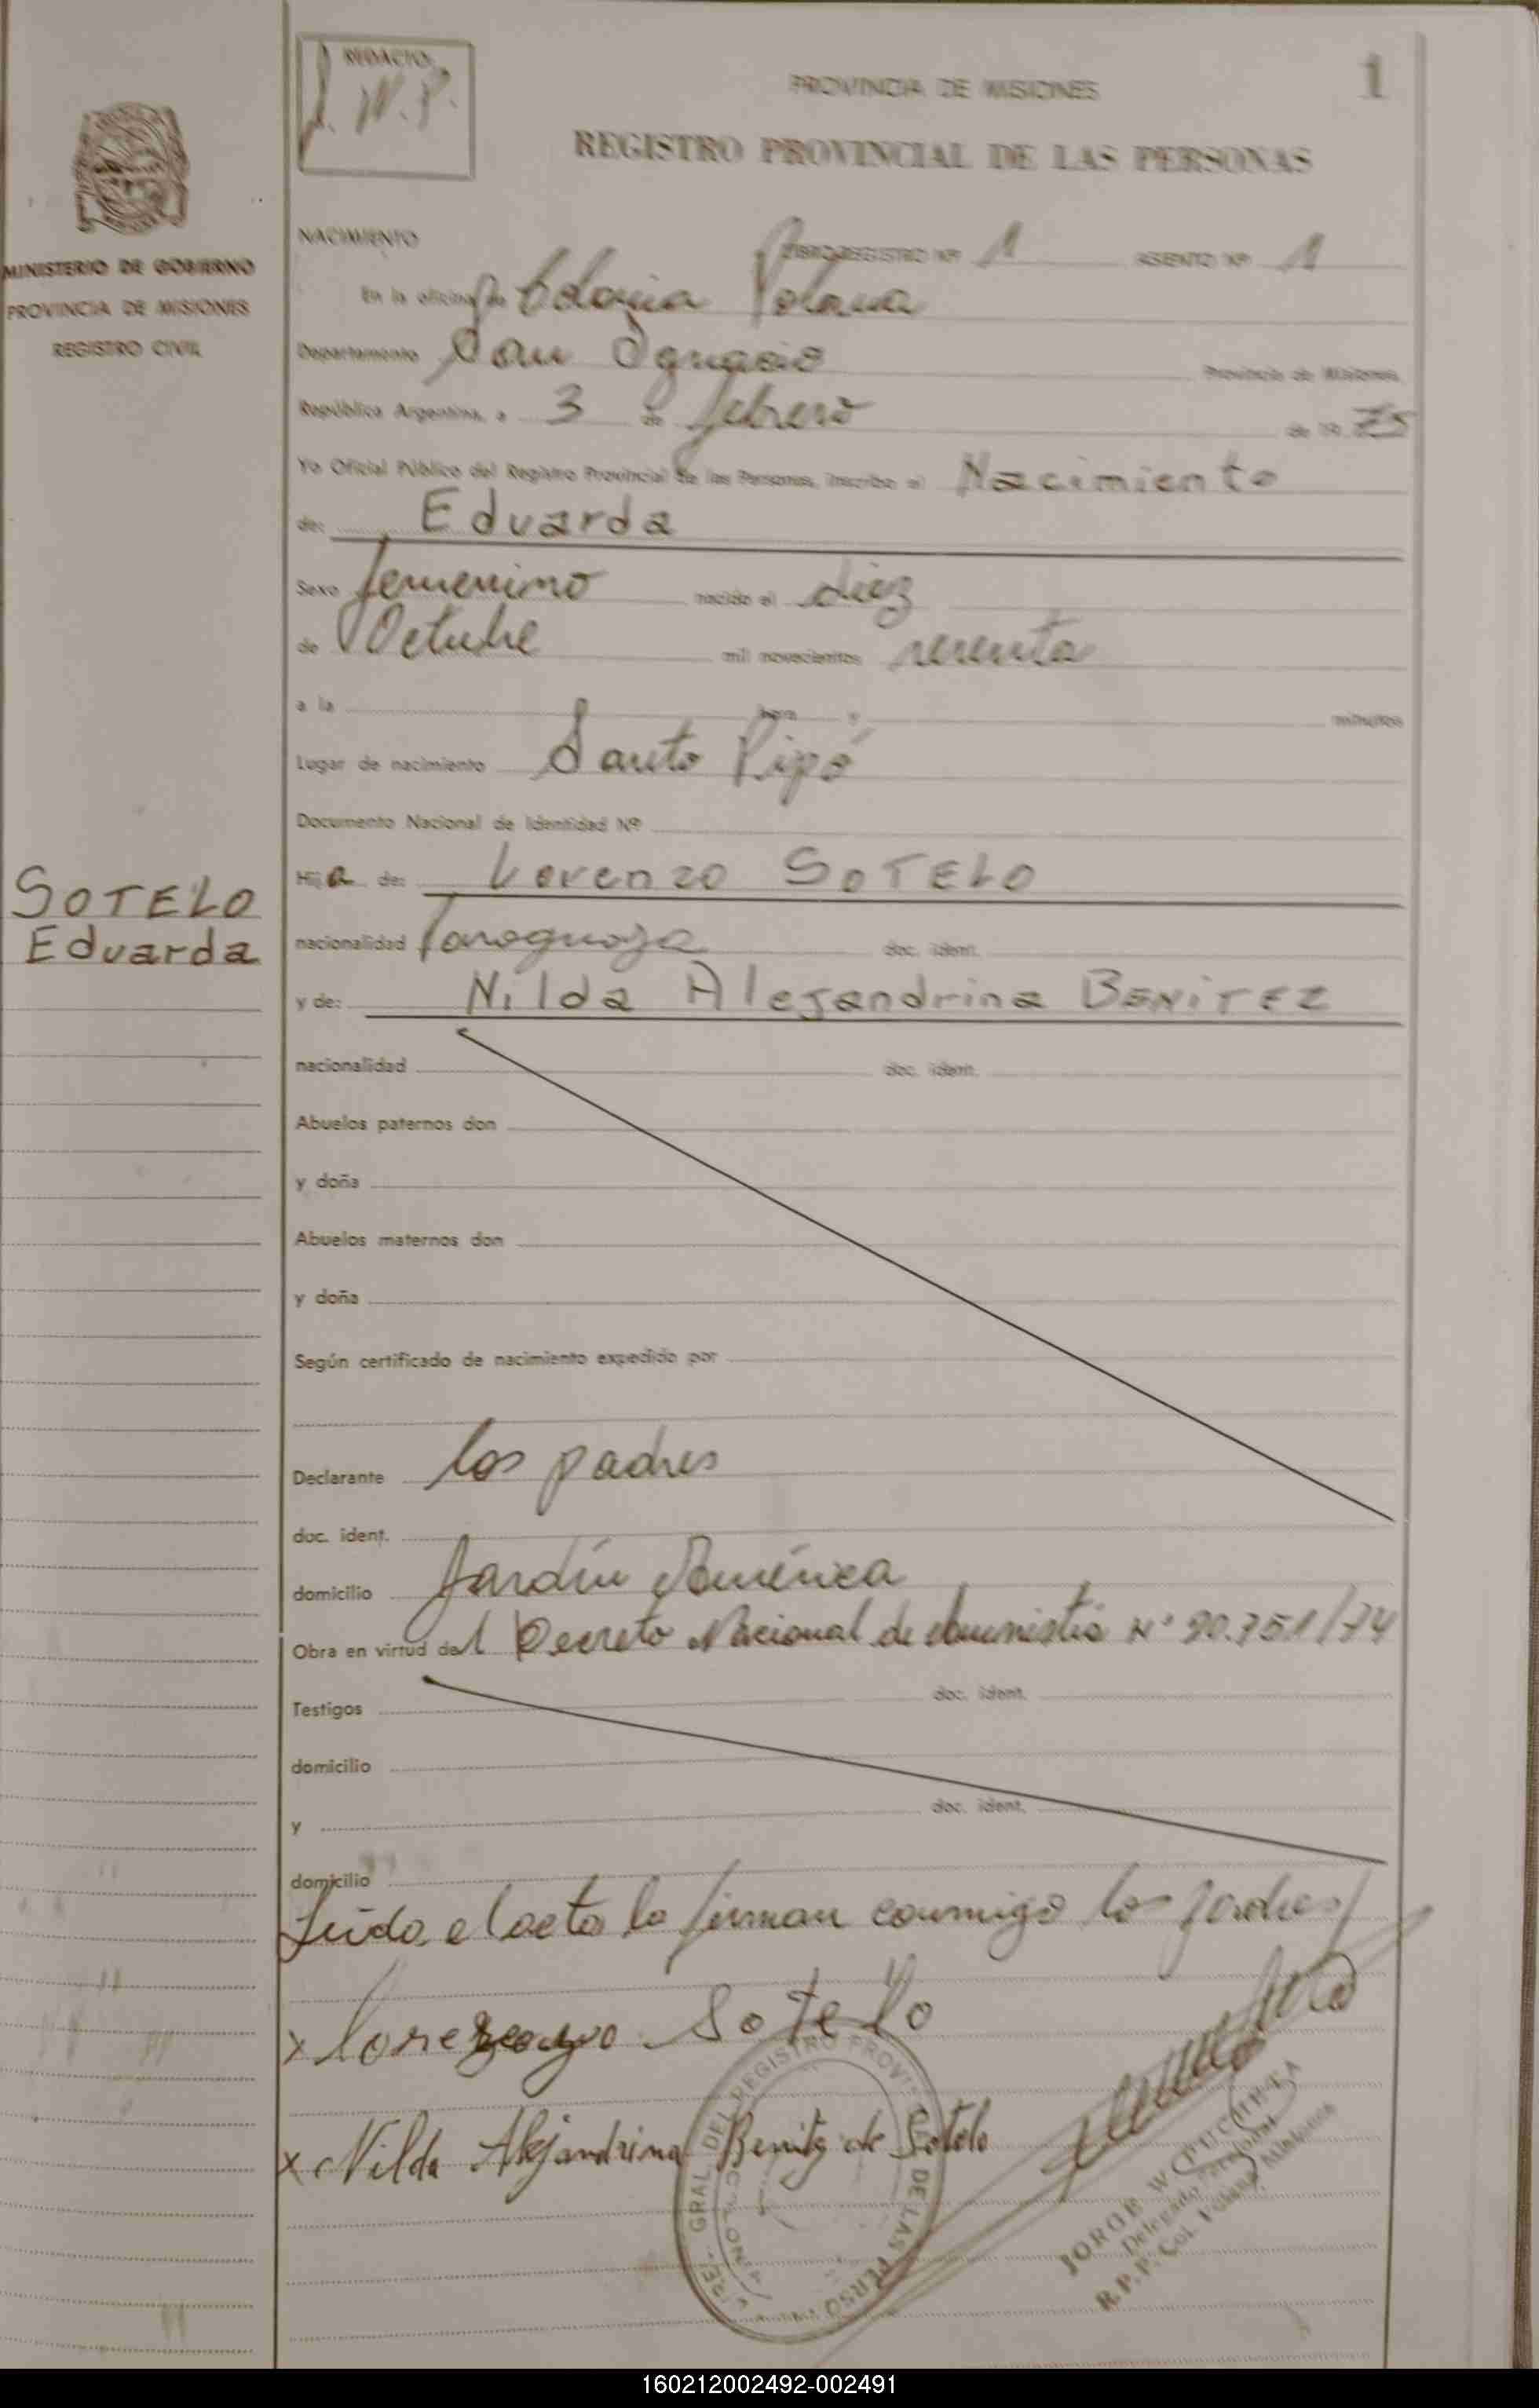 REDACTO
J. W. P.
PROVINCIA DE MISIONES
1
REGISTRO PROVINCIAL DE LAS PERSONAS
MINISTERIO DE GOBIERNO
PROVINCIA DE MISIONES
REGISTRO CIVIL
NACIMIENTO
REGISTRO Nº 1 ASIENTO Nº 1
En la oficina de Colonia Polana
Departamento San Ignacio Provincia de Misiones
República Argentina, a 3 de febrero de 19 75
Yo Oficial Público del Registro Provincial de las Personas, inscribo el Nacimiento
de: Eduarda
Sexo femenino nacido el diez
de Octubre mil novecientos
a la hora y minutos
Lugar de nacimiento Santo Pipó
Documento Nacional de Identidad Nº
Hija de: Lorenzo SOTELO
SOTELO
Eduarda
nacionalidad Paraguaya doc. ident.
y de: Nilda Alejandrina BENITEZ
nacionalidad doc. ident.
Abuelos paternos don
y doña
Abuelos maternos don
y doña
Según certificado de nacimiento expedido por
Declarante los padres
doc. ident.
domicilio Jardín América
Obra en virtud del Decreto Nacional de Amnistia Nº 20.751/74
Testigos doc. ident.
domicilio
y doc. ident.
domicilio
Leida el acta la firman conmigo los padres
x Sotelo
x Nilda Alejandrina Benitz de Sotelo
GRAL. DEL REGISTRO PROV. DE LAS PERSO
JORGE W.
Delegado
R.P.P. Col. Polana Misiones
160212002492-002491